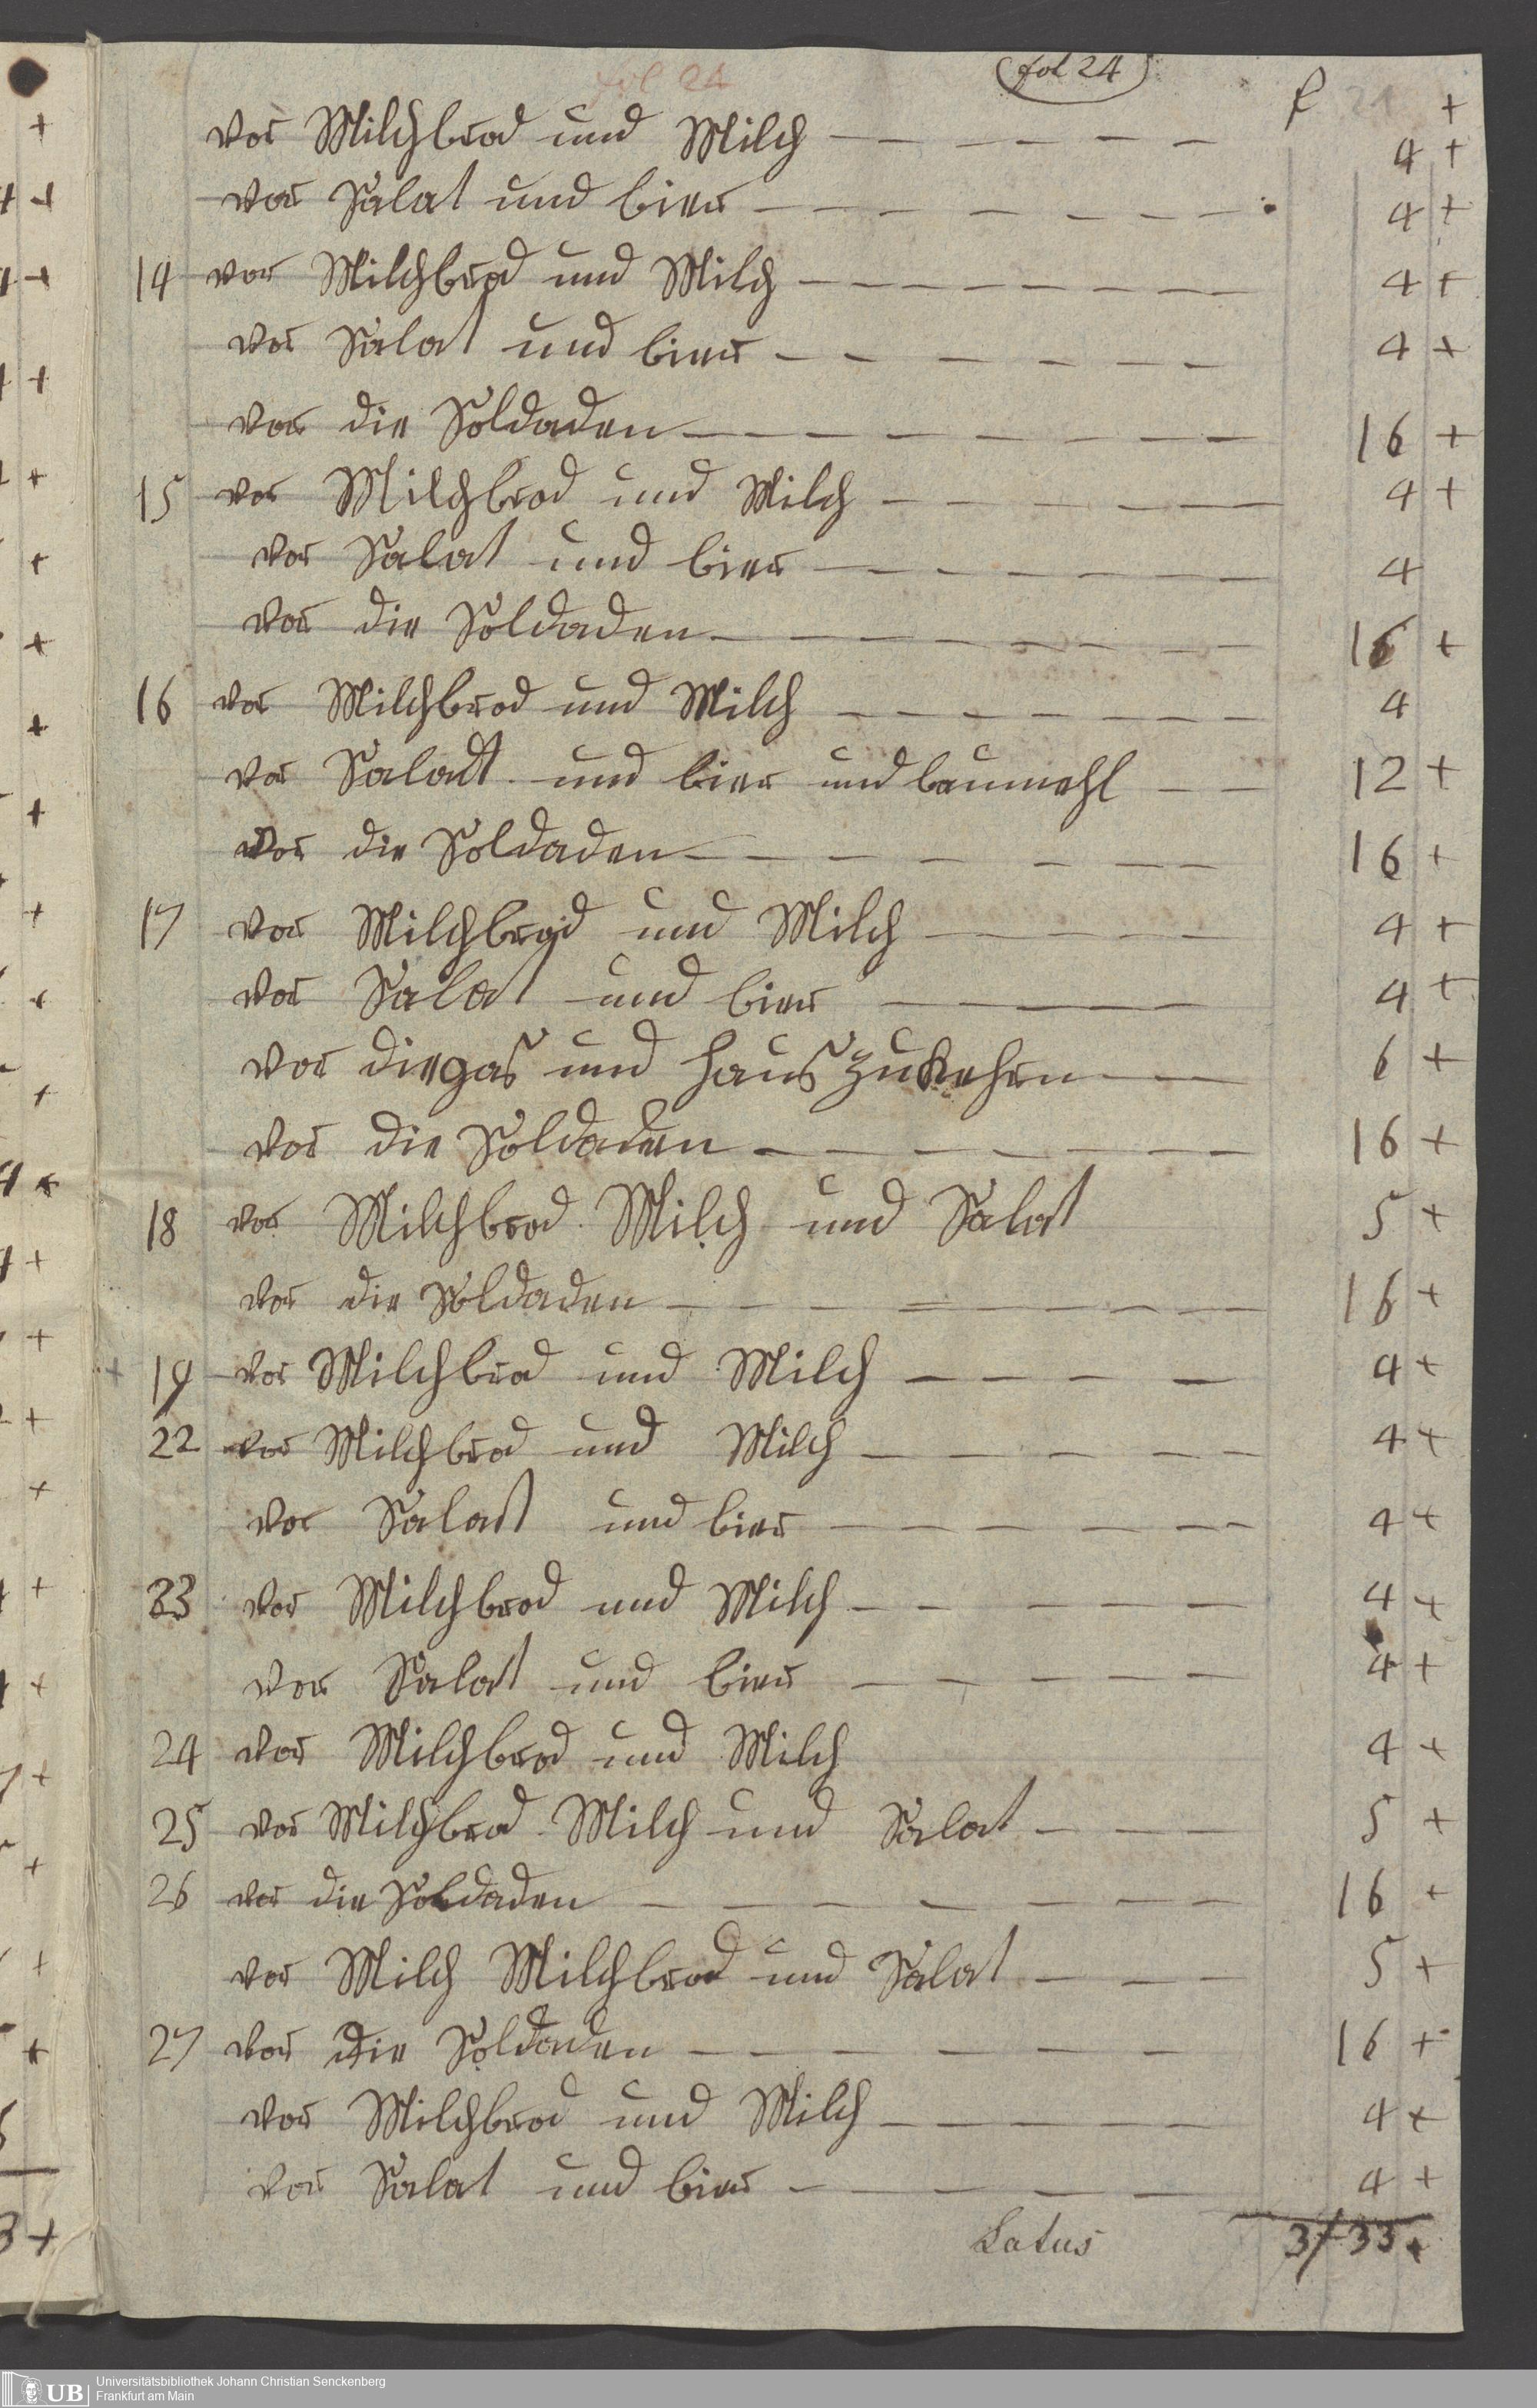 fol 24
fol 24
f 21 +
vor Milchbrod und Milch — — — — — 4 +
vor Salat und bier — — — — — — 4 +
14 vor Milchbrod und Milch — — — — — — — 4 +
vor Salat und bier — — — — — — 4 +
vor die Soldaden — — — — — — — 16 +
15 vor Milchbrod und Milch — — — — — 4 +
vor Salat und bier — — — — — — 4
vor die Soldaden — — — — — — 16 +
16 vor Milchbrod und Milch — — — — — — — 4
vor Saladt und bier und baumehl — — 12 +
vor die Soldaden — — — — — — — 16 +
17 vor Milchbrod und Milch — — — — — 4 +
vor Salat und bier — — — — 4 +
vor die gas und haus zu kehren — — 6 +
vor die Soldaden — — — — — — — 16 +
18 vor Milchbrod Milch und Salat 5 +
vor die Soldaden — — — — — — — — 16 +
19 vor Milchbrod und Milch — — — — 4 +
22 vor Milchbrod und Milch — — — — — — 4 +
vor Salat und bier — — — — — — 4 +
23 vor Milchbrod und Milch — — — — — 4 +
vor Salat und bier — — — — — 4 +
24 vor Milchbrod und Milch 4 +
25 vor Milchbrod Milch und Salat — — — 5 +
26 vor die Soldaden — — — — — — — 16 +
vor Milch Milchbrod und Salat — — — 5 +
27 vor die Soldaden — — — — — — — 16 +
vor Milchbrod und Milch — — — — — 4 +
vor Salat und bier — — — — — — 4 +
Latus 3 f 33 +
UB Universitätsbibliothek Johann Christian Senckenberg
Frankfurt am Main